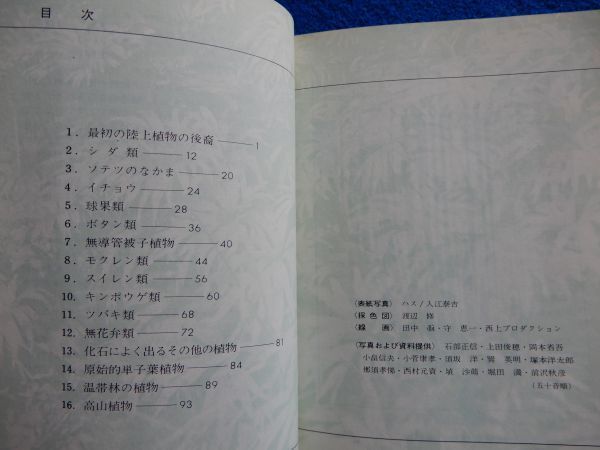 目 次
1. 最初の陸上植物の後裔 1
2. シダ類 12
3. ソテツのなかま 20
4. イチョウ 24
5. 球果類 28
6. ボタン類 36
7. 無導管被子植物 40
8. モクレン類 44
9. スイレン類 56
10. キンポウゲ類 60
11. ツバキ類 68
12. 無花弁類 72
13. 化石によく出るその他の植物 81
14. 原始的単子葉植物 84
15. 温帯林の植物 89
16. 高山植物 93
〈表紙写真〉 ハス/入江泰吉
〈採色図〉 渡辺 修
〈線画〉 田中 守 恵一・西上プロダクション
〈写真および資料提供〉 石部正信・上田俊穂・岡本省吾
小畠信夫・小菅康孝・須坂 洋・巽 英明・塚本洋太郎
那須孝悌・西村元資・埴 沙萠・堀田 満・前沢秋彦
(五十音順)